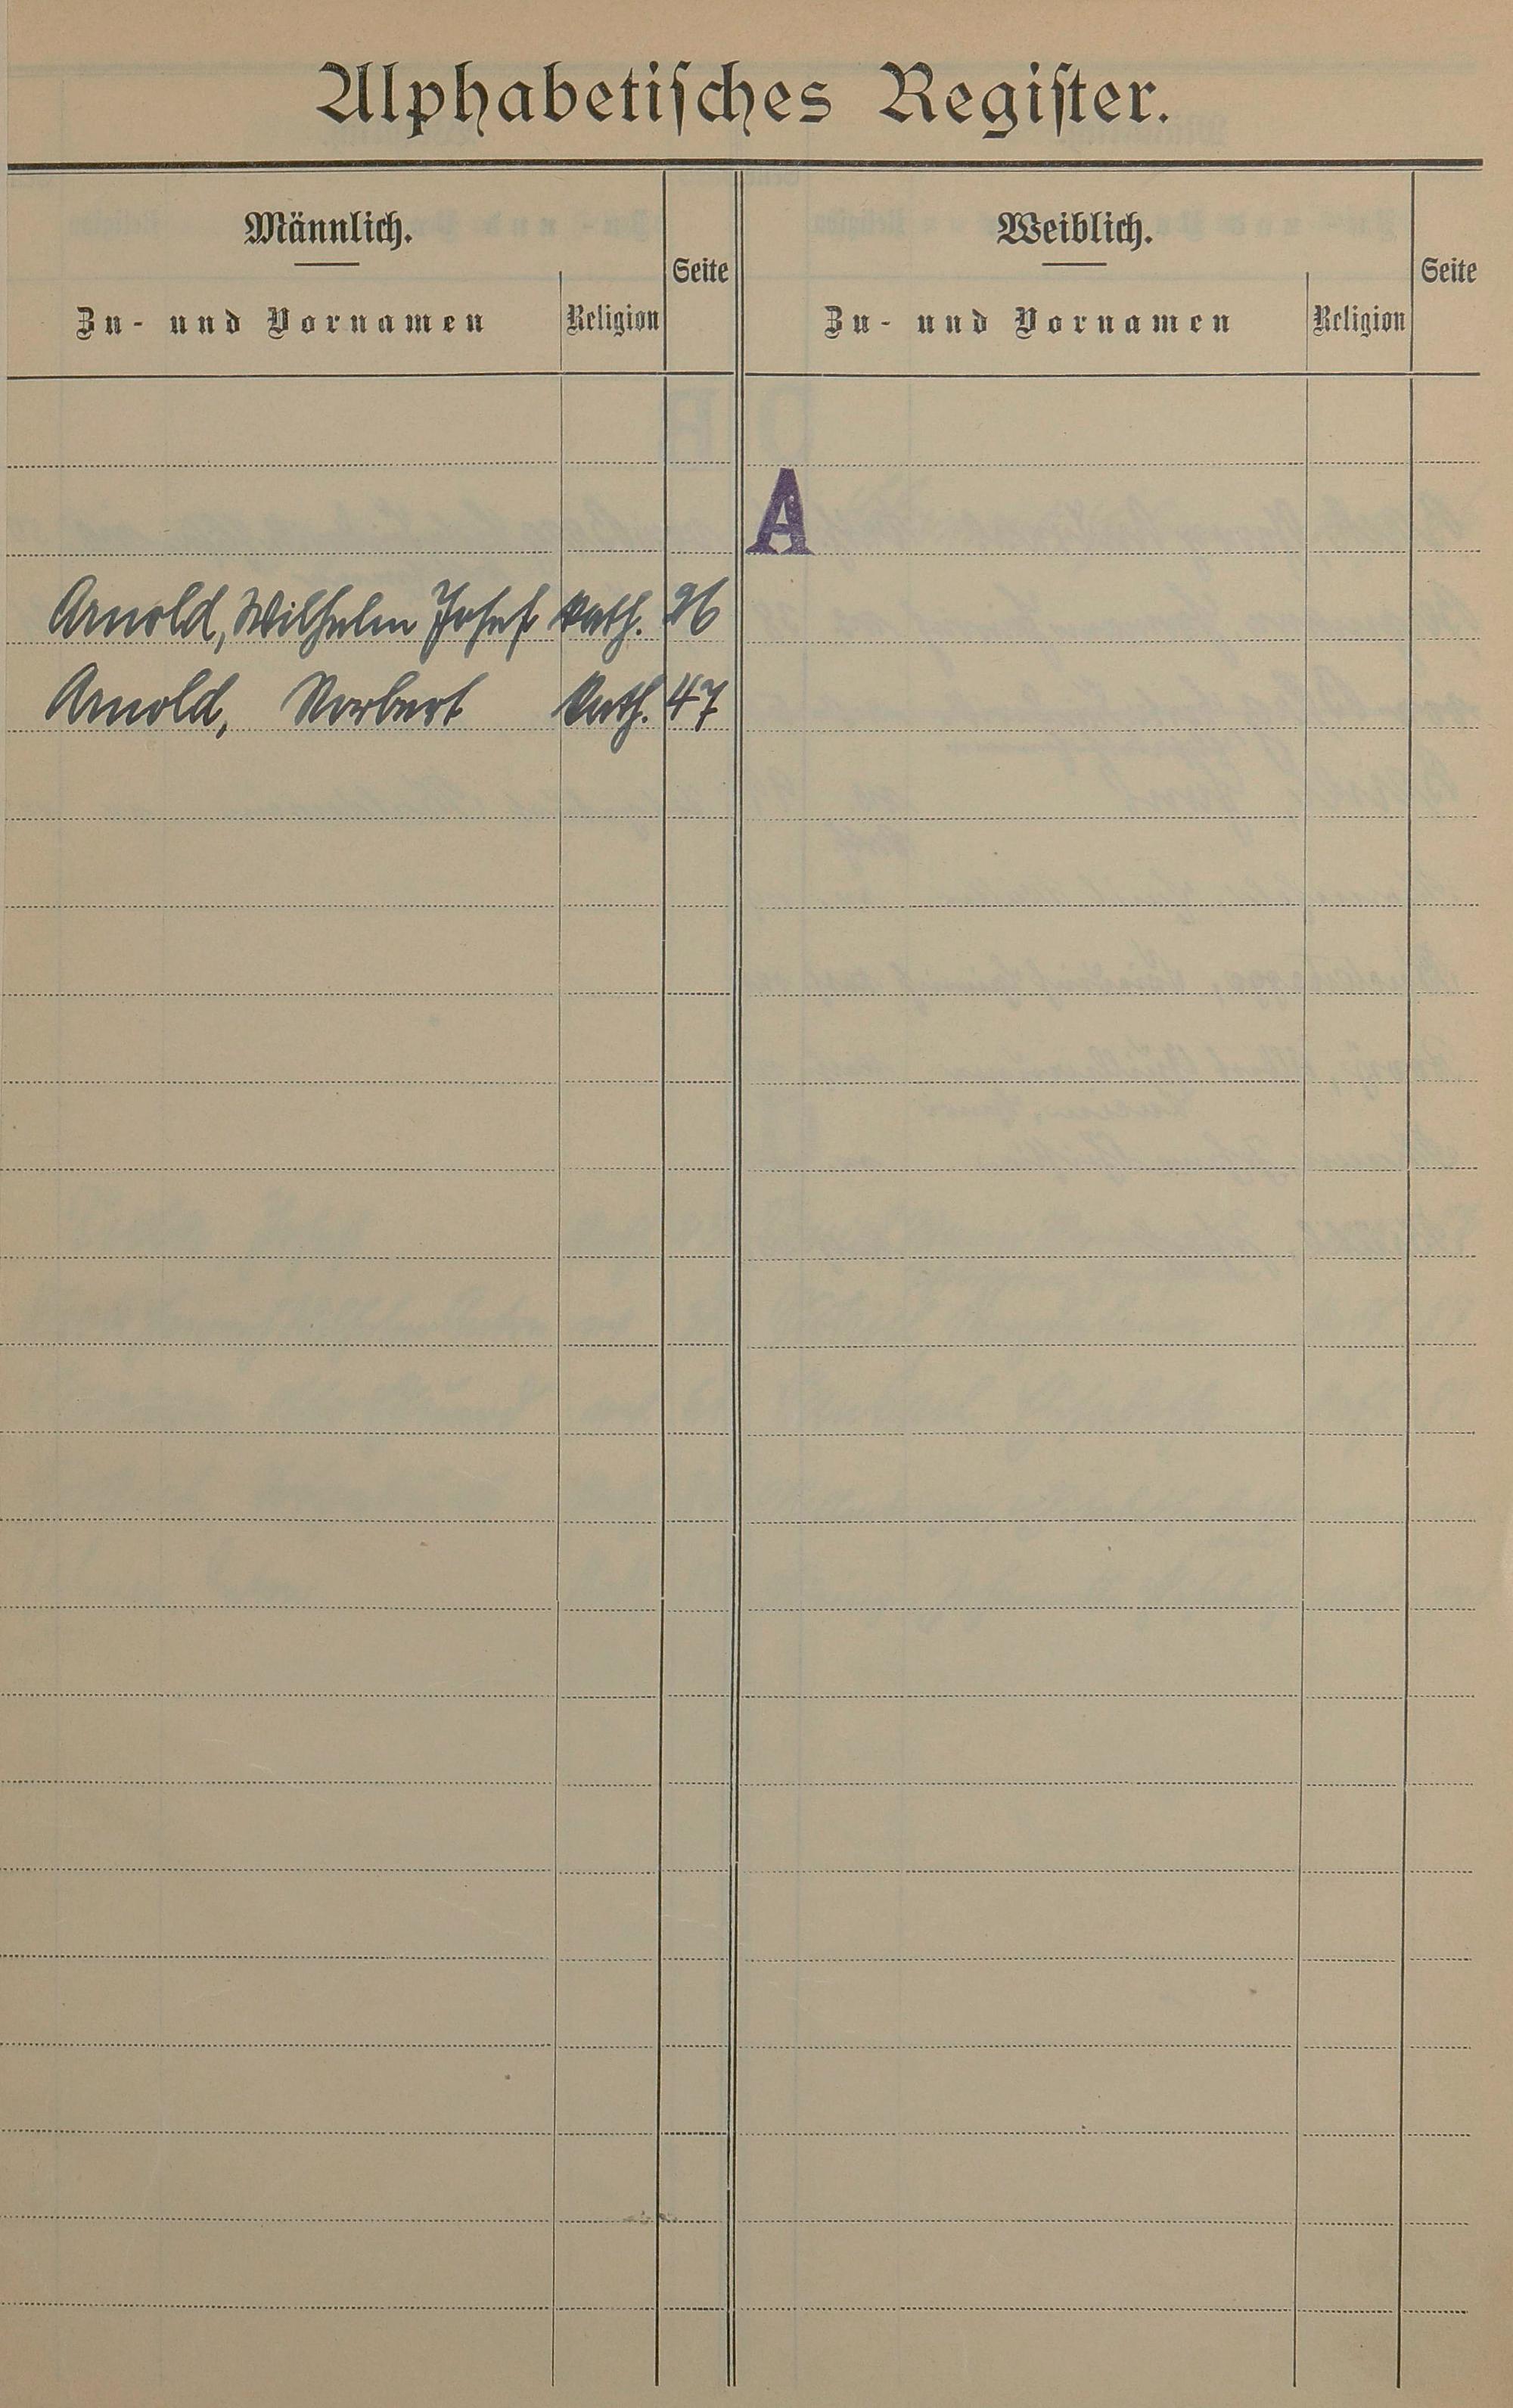 Alphabetisches Register.
Männlich.
Seite
Weiblich.
Seite
Zu- und Vornamen
Religion
Zu- und Vornamen
Religion
A
Arnold, Wilhelm Josef kath. 26
Arnold, Norbert kath. 47